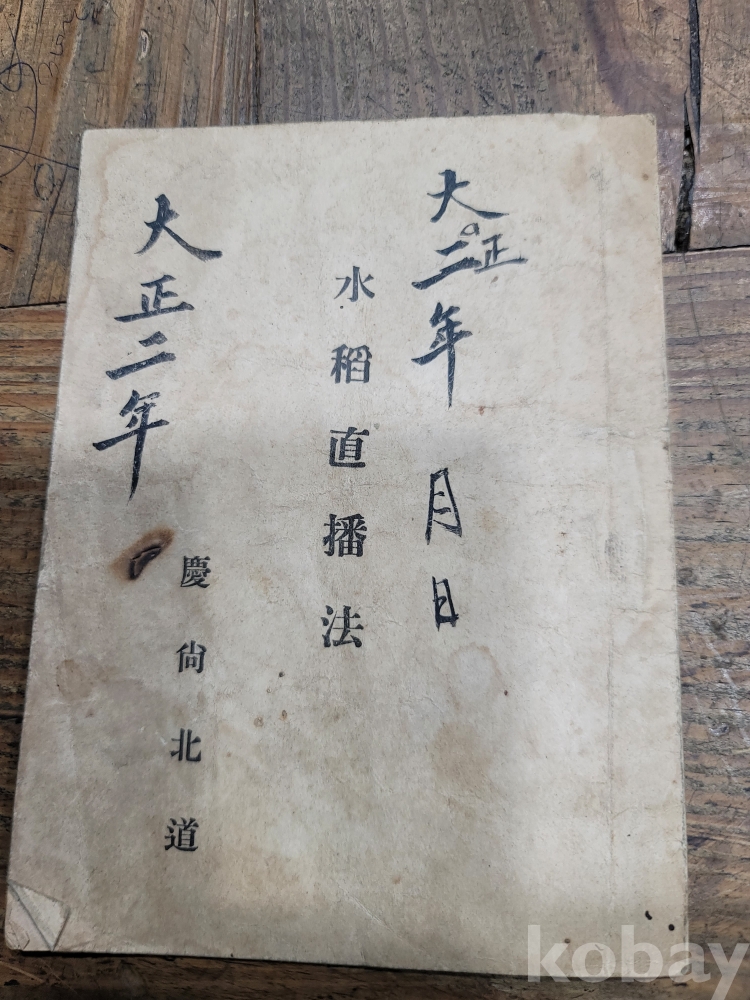 大正二年 月 日
水稻直播法
大正二年
慶尙北道
kobay